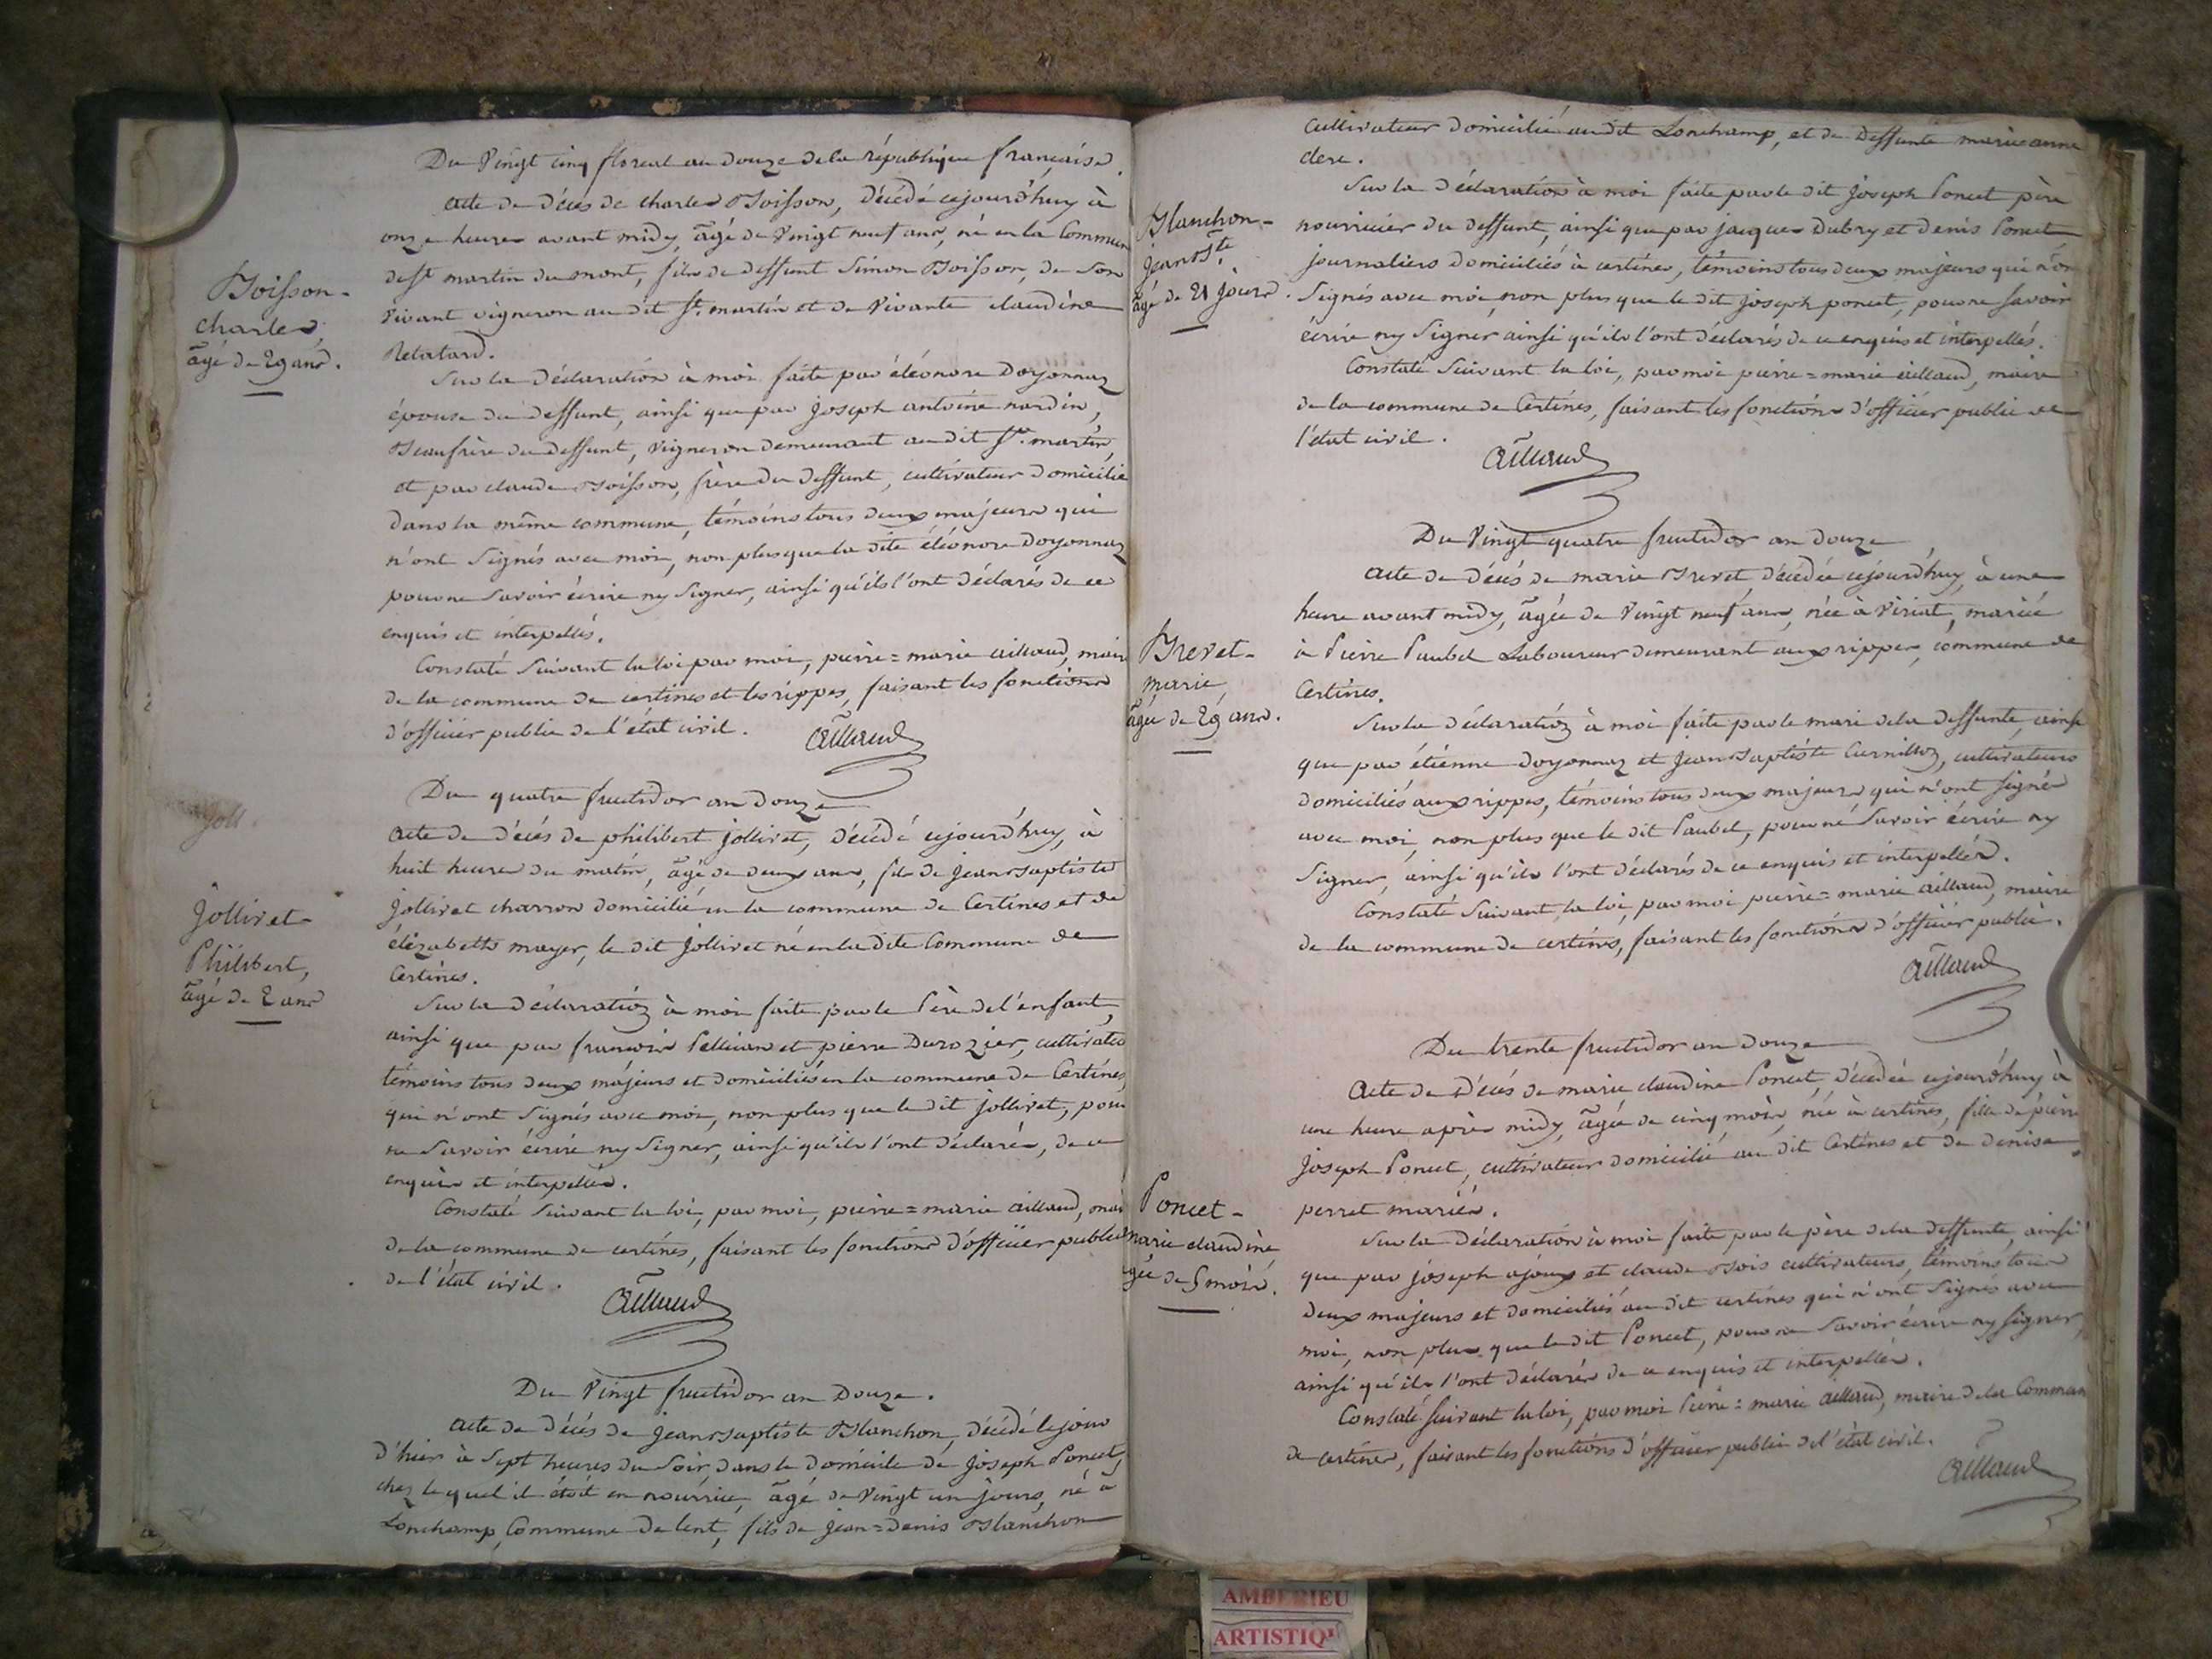 Du Vingt cinq floreal an douze de la république française.
Acte de décès de charles Boisson, décédé cejourd'huy à
onze heures avant midy, âgé de Vingt neuf ans, né en la Commune
de St martin du mont, fils de deffunt Simon Boisson, de son
Vivant vigneron au dit St. martin et de Vivante claudine
Boisson-
charles
âgé de 29 ans.
Sur la déclaration à moi faite par éléonore Doyonnaz
épouse du deffunt, ainsi que par joseph antoine nardin,
Beaufrère du deffunt, vigneron demeurant au dit St. martin,
et par claude Boisson, frère du deffunt, cultivateur domicilié
dans la même commune, témoins tous deux majeurs qui
n'ont Signés avec moi, non plus que la dite éléonore Doyonnaz
pour ne Savoir écrire ny Signer, ainsi qu'ils l'ont déclarés de ce
enquis et interpellés.
Constaté Suivant la loi par moi, pierre=marie aillaud, maire
de la commune de certines et les rippes, faisant les fonctions
d'officier public de l'état civil.
Aillaud
Du quatre fructidor an douze
Joll
Acte de décés de philibert jollivet, décédé cejourd'huy, à
huit heures du matin, âgé de deux ans, fils de jean Baptiste
Jollivet charron domicilié en la commune de Certines et de
élizabeth mayer, le dit jollivet né en la dite Commune de
Certines.
Jollivet-
Philibert,
âgé de 2 ans
Sur la déclaration à moi faite par le Père de l'enfant,
ainsi que par françois Pellican et pierre Durozier, cultivateurs
témoins tous deux majeurs et domiciliés en la commune de Certines,
qui n'ont Signés avec moi, non plus que le dit jollivet, pour
ne Savoir écrire ny Signer, ainsi qu'ils l'ont déclarés, de ce
enquis et interpellés.
Constaté Suivant la loi, par moi, pierre=marie aillaud, maire
de la commune de certines, faisant les fonctions d'officier public
de l'état civil.
Aillaud
Du Vingt fructidor an Douze.
Acte de décés de jean Baptiste Blanchon, décédé le jour
d'hier à Sept heures du Soir, dans le domicile de joseph Poncet,
chez lequel il étoit en nourrice, âgé de Vingt un jours, né à
Lonchamp, Commune de lent, fils de jean=denis Blanchon
Cultivateur domicilié au dit Lonchamp, et de Deffunte marie anne
clere.
Blanchon-
jean Bte.
âgé de 21 jours.
Sur la déclaration à moi faite par le dit joseph Poncet père
nourricier du deffunt, ainsi que par jacques Dubry et denis Poncet
journaliers domiciliés à certines, témoins tous deux majeurs qui n'ont
Signés avec moi, non plus que le dit joseph poncet, pour ne savoir
écrire ny Signer ainsi qu'ils l'ont déclarés de ce enquis et interpellés.
Constaté Suivant la loi, par moi pierre=marie aillaud, maire
de la commune de Certines, faisant les fonctions d'officier public de
l'état civil.
Aillaud
Du Vingt quatre fructidor an douze
Acte de décés de marie Brevet, décédée cejourd'huy, à une
heure avant midy, âgée de Vingt neuf ans, née à Viriat, mariée
à Pierre Paubel Laboureur demeurant aux rippes, commune de
Certines.
Brevet-
marie,
âgée de 29 ans.
Sur la déclaration à moi faite par le mari de la deffunte, ainsi
que par étienne doyonnaz et jean Baptiste Curnillon, cultivateurs
domiciliés aux rippes, témoins tous deux majeurs qui n'ont signés
avec moi, non plus que le dit Paubel, pour ne Savoir écrire ny
Signer, ainsi qu'ils l'ont déclarés de ce enquis et interpellés.
Constaté Suivant la loi, par moi pierre=marie aillaud, maire
de la commune de certines, faisant les fonctions d'officier public.
Aillaud
Du trente fructidor an douze
Acte de Décés de marie claudine Poncet, décédée cejourd'huy à
une heure après midy, âgée de cinq mois, née à certines, fille de pierre
joseph Poncet, cultivateur domicilié au dit Certines et de denise
perret mariés.
Poncet-
marie claudine
âgée de 5 mois.
Sur la déclaration à moi faite par le père de la deffunte, ainsi
que par joseph ajoux et claude Bois cultivateurs, témoins tous
deux majeurs et domiciliés au dit certines qui n'ont Signés avec
moi, non plus que le dit Poncet, pour ne Savoir écrire ny signer,
ainsi qu'ils l'ont déclarés de ce enquis et interpellés.
Constaté suivant la loi, par moi Pierre=marie aillaud, maire de la Commune
de certines, faisant les fonctions d'officier public de l'état civil.
Aillaud
AMBERIEU
ARTISTIQU